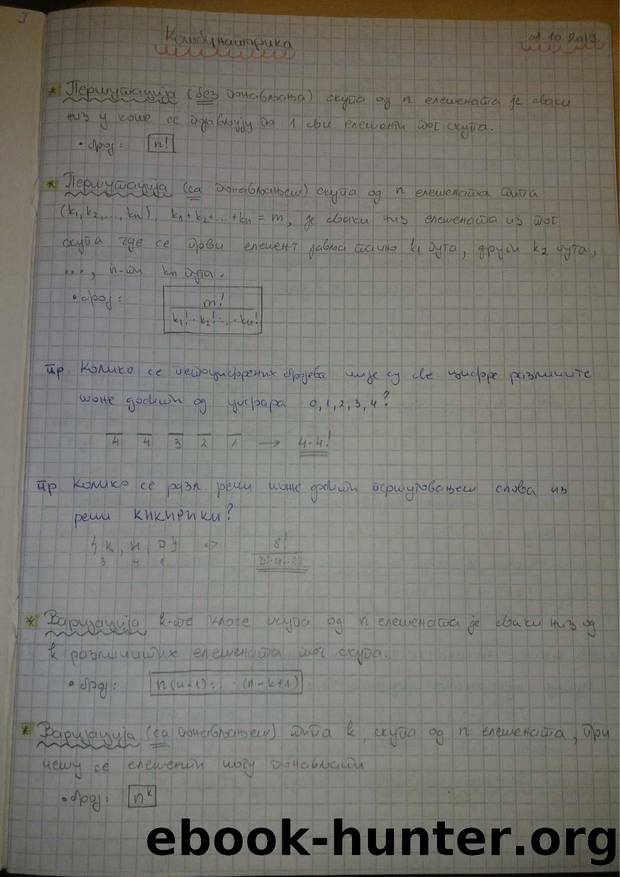 Комбинаторика
01.10.2019
* Пермутација (без понављања) скупа од n елемената је сваки
низ у коме се појављују по 1 сви елементи тог скупа.
• број: n!
* Пермутација (са понављањем) скупа од n елемената типа
(k₁, k₂, ..., kn), k₁ + k₂ + ... + kn = m, је сваки низ елемената из тог
скупа где се први елемент јавља тачно k₁ пута, други k₂ пута,
..., n-ти kn пута.
• број: m! / k₁! · k₂! · ... · kn!
пр Колико се петоцифрених бројева чије су све цифре различите
може добити од цифара 0, 1, 2, 3, 4?
4 4 3 2 1 → 4·4!
пр Колико се разл. речи може добити пермутовањем слова из
речи КИКИРИКИ?
3 4 1
8!
* Варијација k-те класе скупа од n елемената је сваки низ од
k различитих елемената тог скупа.
• број: n(n-1)· ... ·(n-k+1)
* Варијација (са понављањем) типа k, скупа од n елемената, при
чему се елементи могу понављати
• број: nᵏ
ebook-hunter.org